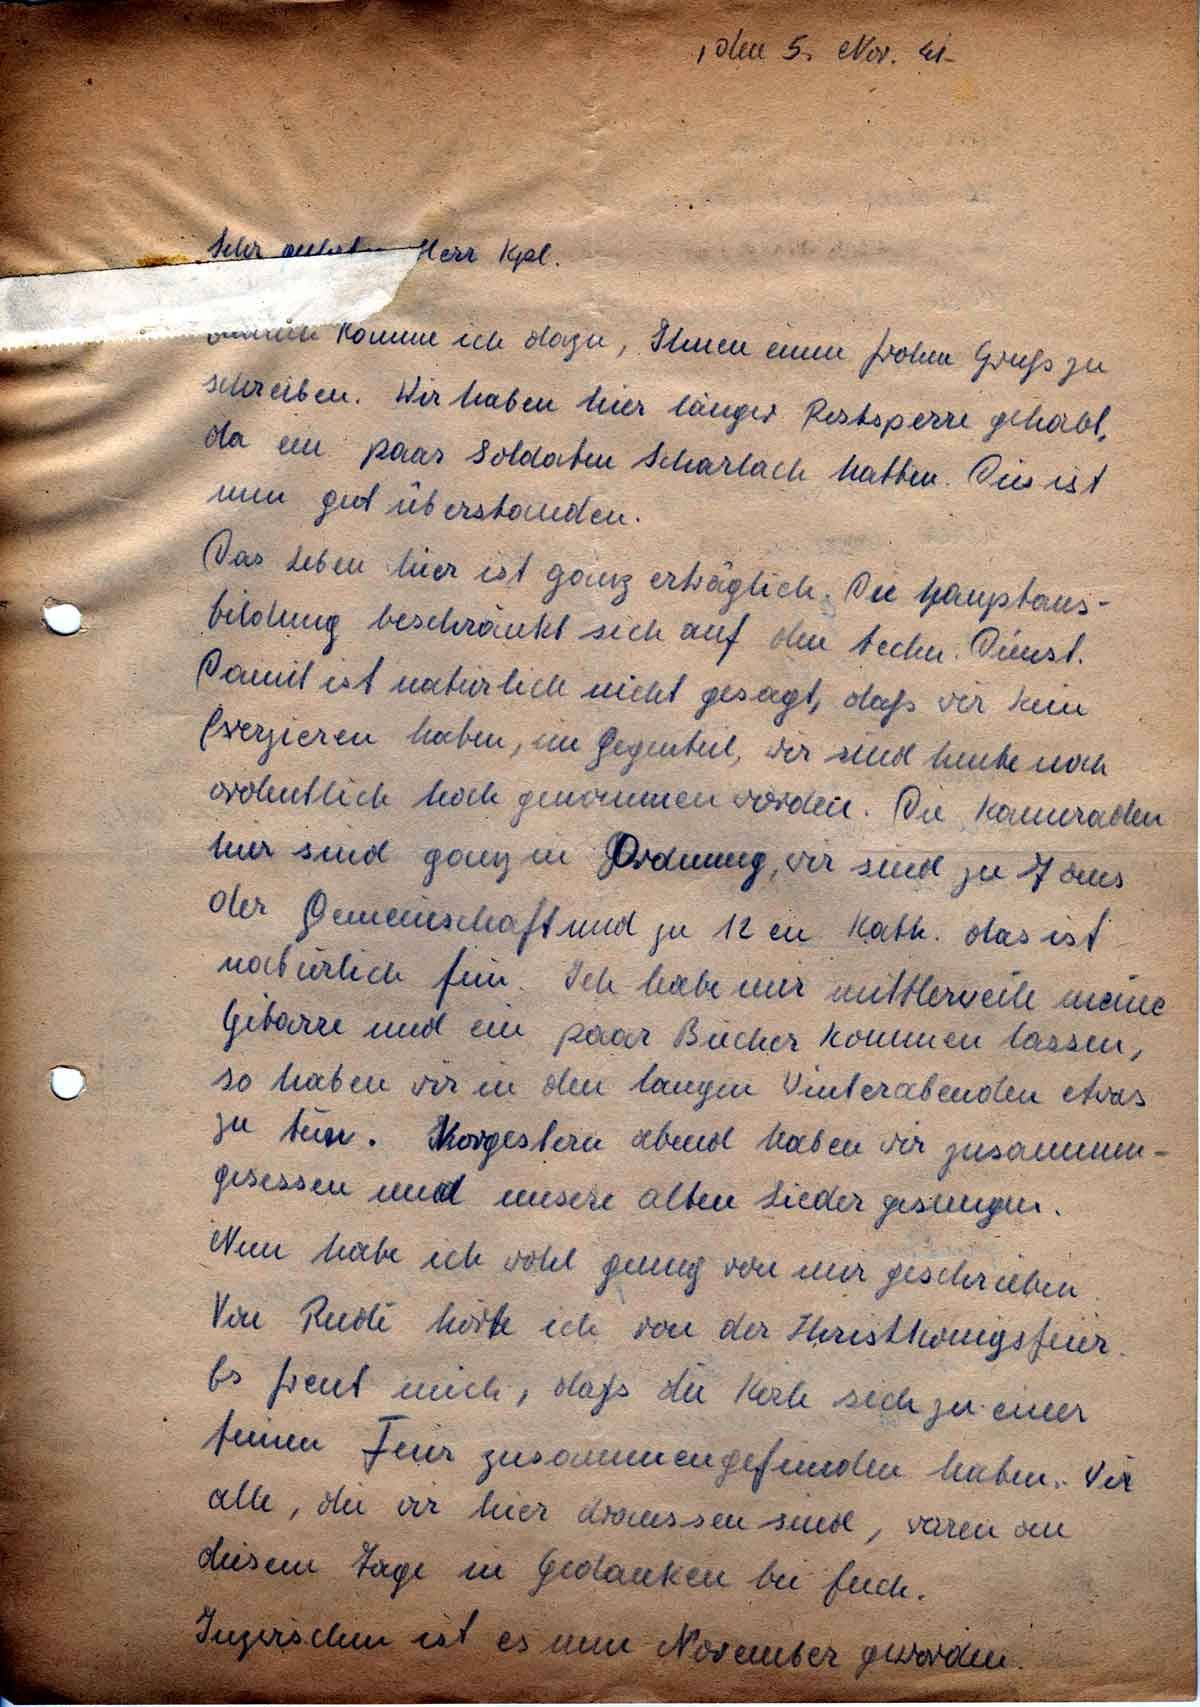 , den 5. Nov. 41.
Sehr geehrter Herr Kpl.
komme ich dazu, Ihnen einen frohen Gruß zu
schreiben. Wir haben hier länger Postsperre gehabt,
da ein paar Soldaten Scharlach hatten. Dies ist
nun gut überstanden.
Das Leben hier ist ganz erträglich. Die Hauptaus-
bildung beschränkt sich auf den techn. Dienst.
Damit ist natürlich nicht gesagt, daß wir kein
Exerzieren haben, im Gegenteil, wir sind heute noch
ordentlich hoch genommen worden. Die Kameraden
hier sind ganz in Ordnung, wir sind zu 7 aus
der Gemeinschaft und zu 12 en Kath. das ist
natürlich fein. Ich habe mir mittlerweile meine
Gitarre und ein paar Bücher kommen lassen,
so haben wir in den langen Winterabenden etwas
zu tun. Vorgestern abend haben wir zusammen-
gesessen und unsere alten Lieder gesungen.
Nun habe ich wohl genug von mir geschrieben.
Von Rudi hörte ich von der Christkönigsfeier.
Es freut mich, daß die Kerle sich zu einer
feinen Feier zusammengefunden haben. Wir
alle, die wir hier draussen sind, waren an
diesem Tage in Gedanken bei Euch.
Inzwischen ist es nun November geworden.